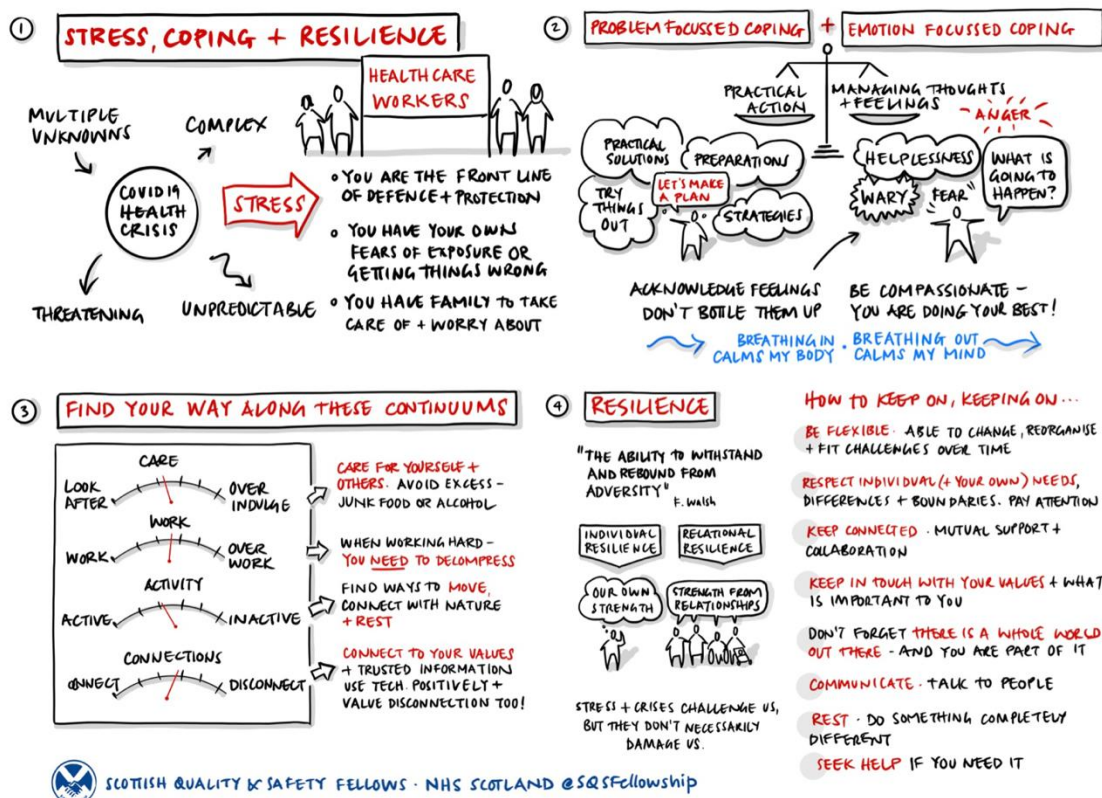 1
STRESS, COPING + RESILIENCE
MULTIPLE
UNKNOWNS
COMPLEX
COVID 19
HEALTH
CRISIS
THREATENING
UNPREDICTABLE
STRESS
HEALTHCARE
WORKERS
YOU ARE THE FRONT LINE
OF DEFENCE + PROTECTION
YOU HAVE YOUR OWN
FEARS OF EXPOSURE OR
GETTING THINGS WRONG
YOU HAVE FAMILY TO TAKE
CARE OF + WORRY ABOUT
2
PROBLEM FOCUSSED COPING + EMOTION FOCUSSED COPING
PRACTICAL
ACTION
MANAGING THOUGHTS
+ FEELINGS
PRACTICAL
SOLUTIONS
PREPARATIONS
TRY
THINGS
OUT
LET'S MAKE
A PLAN
STRATEGIES
ANGER
HELPLESSNESS
WARY
FEAR
WHAT IS
GOING TO
HAPPEN?
ACKNOWLEDGE FEELINGS
DON'T BOTTLE THEM UP
BE COMPASSIONATE -
YOU ARE DOING YOUR BEST!
BREATHING IN
CALMS MY BODY
· BREATHING OUT
CALMS MY MIND
3
FIND YOUR WAY ALONG THESE CONTINUUMS
CARE
LOOK
AFTER
OVER
INDULGE
CARE FOR YOURSELF +
OTHERS. AVOID EXCESS -
JUNK FOOD OR ALCOHOL
WORK
WORK
OVER
WORK
WHEN WORKING HARD -
YOU NEED TO DECOMPRESS
ACTIVITY
ACTIVE
INACTIVE
FIND WAYS TO MOVE,
CONNECT WITH NATURE
+ REST
CONNECTIONS
CONNECT
DISCONNECT
CONNECT TO YOUR VALUES
+ TRUSTED INFORMATION
USE TECH. POSITIVELY +
VALUE DISCONNECTION TOO!
4
RESILIENCE
"THE ABILITY TO WITHSTAND
AND REBOUND FROM
ADVERSITY"
F. Walsh
INDIVIDUAL
RESILIENCE
RELATIONAL
RESILIENCE
OUR OWN
STRENGTH
STRENGTH FROM
RELATIONSHIPS
STRESS + CRISES CHALLENGE US,
BUT THEY DON'T NECESSARILY
DAMAGE US.
HOW TO KEEP ON, KEEPING ON...
BE FLEXIBLE · ABLE TO CHANGE, REORGANISE
+ FIT CHALLENGES OVER TIME
RESPECT INDIVIDUAL (+ YOUR OWN) NEEDS,
DIFFERENCES + BOUNDARIES. PAY ATTENTION
KEEP CONNECTED · MUTUAL SUPPORT +
COLLABORATION
KEEP IN TOUCH WITH YOUR VALUES + WHAT
IS IMPORTANT TO YOU
DON'T FORGET THERE IS A WHOLE WORLD
OUT THERE - AND YOU ARE PART OF IT
COMMUNICATE · TALK TO PEOPLE
REST · DO SOMETHING COMPLETELY
DIFFERENT
SEEK HELP IF YOU NEED IT
SCOTTISH QUALITY & SAFETY FELLOWS · NHS SCOTLAND @SQSFellowship